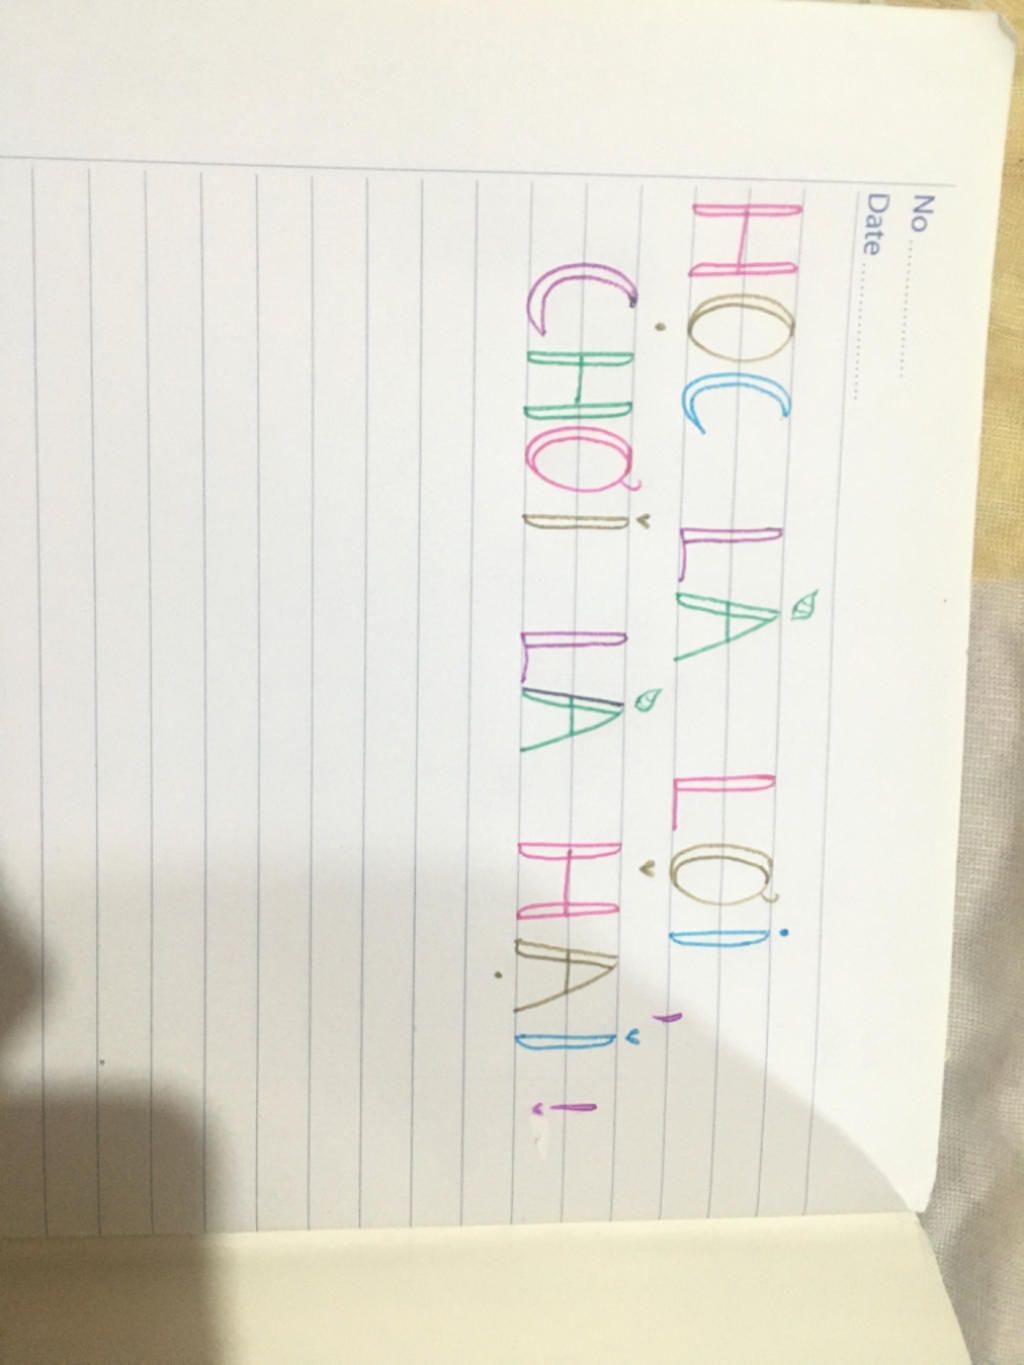 No ................
Date ................
HỌC LÀ LỢI,
CHƠI LÀ HẠI!